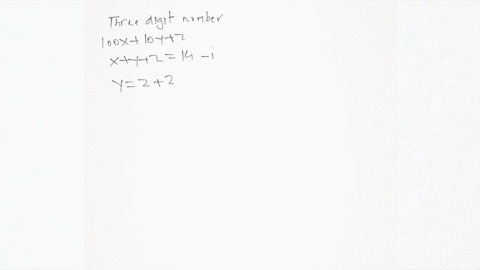 Three digit number
100x+10y+z
x+y+z=14 -i
y=z+2